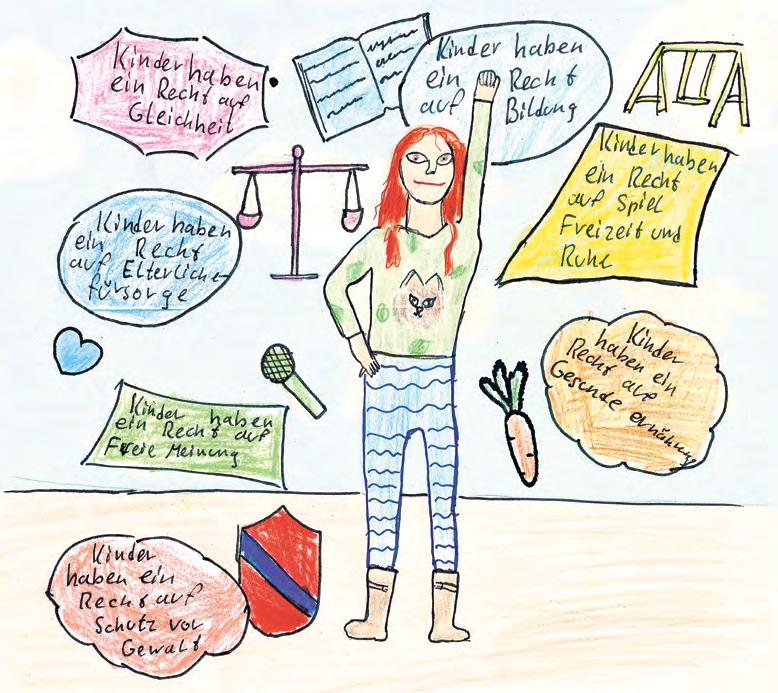 Kinder haben
ein Recht auf
Gleichheit
Kinder haben
ein Recht
auf Bildung
Kinder haben
ein Recht
auf Spiel
Freizeit und
Ruhe
Kinder haben
ein Recht
auf Elterliche
fürsorge
Kinder
haben ein
Recht auf
Gesunde ernährung
Kinder haben
ein Recht auf
Freie Meinung
Kinder
haben ein
Recht auf
Schutz vor
Gewalt